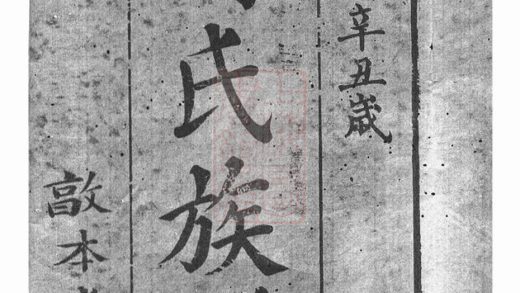 辛丑歲
氏族
敦本